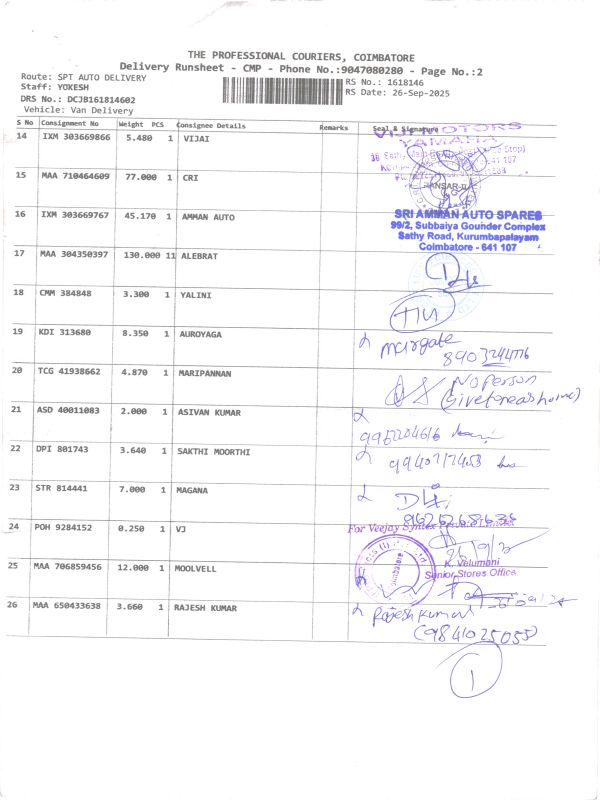 THE PROFESSIONAL COURIERS, COIMBATORE
Delivery Runsheet - CMP - Phone No.:9047080280 - Page No.:2
Route: SPT AUTO DELIVERY
RS No.: 1618146
Staff: YOKESH
RS Date: 26-Sep-2025
DRS No.: DCJB161814602
Vehicle: Van Delivery
S No Consignment No Weight PCS Consignee Details Remarks Seal & Signature
14 IXM 303669866 5.480 1 VIJAI
VIJI MOTORS
YAMAHA
15 MAA 710464609 77.000 1 CRI
16 IXM 303669767 45.170 1 AMMAN AUTO
SRI AMMAN AUTO SPARES
99/2, Subbaiya Gounder Complex
Sathy Road, Kurumbapalayam
Coimbatore - 641 107
17 MAA 304350397 130.000 11 ALEBRAT
18 CMM 384848 3.300 1 YALINI
19 KDI 313680 8.350 1 AUROYAGA
margate
20 TCG 41938662 4.870 1 MARIPANNAN
No Person
21 ASD 40011083 2.000 1 ASIVAN KUMAR
22 DPI 801743 3.640 1 SAKTHI MOORTHI
23 STR 814441 7.000 1 MAGANA
24 POH 9284152 0.250 1 VJ
For Veejay
25 MAA 706859456 12.000 1 MOOLVELL
K. Velumani
Senior Stores Office
26 MAA 650433638 3.660 1 RAJESH KUMAR
Rajesh Kumar
(9841025055)
1